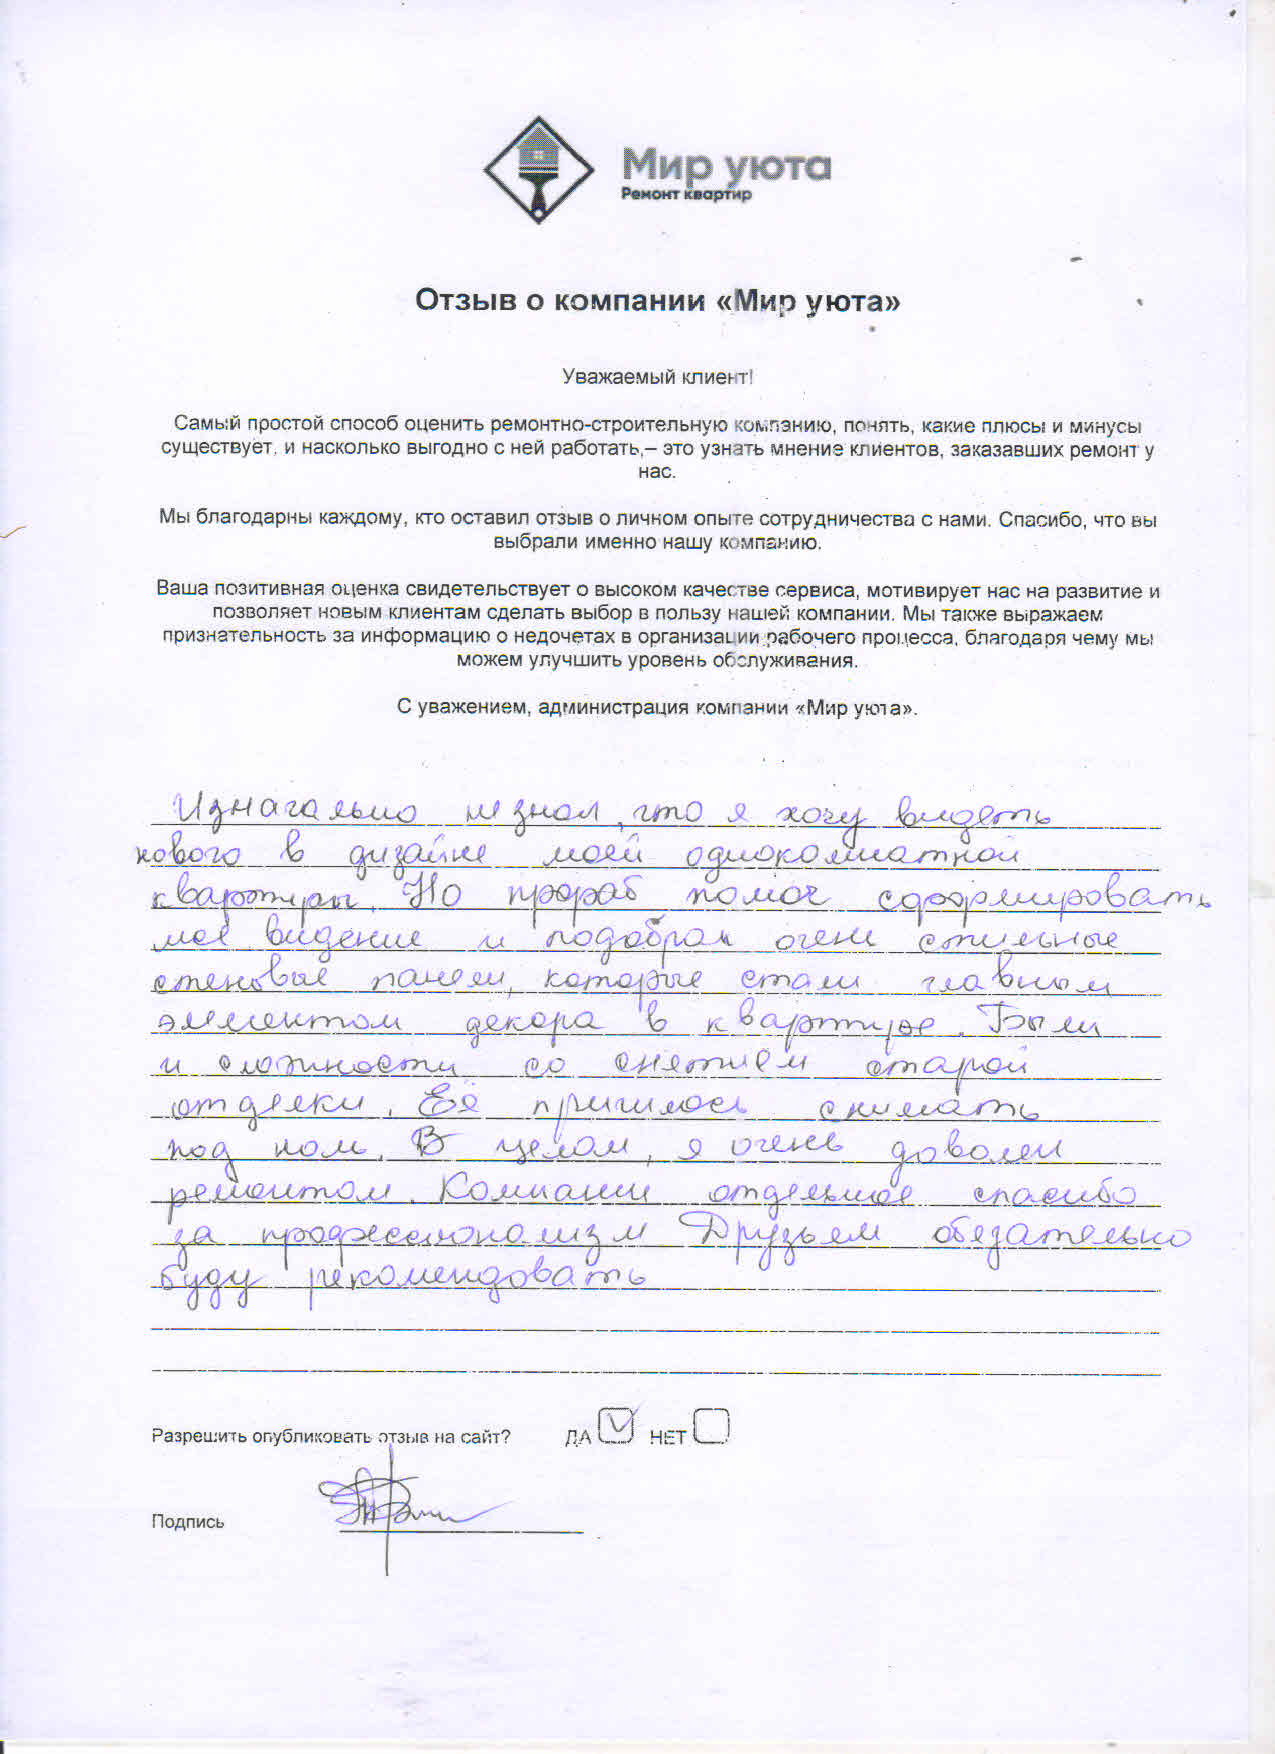 Мир уюта
Ремонт квартир
Отзыв о компании «Мир уюта»
Уважаемый клиент!
Самый простой способ оценить ремонтно-строительную компанию, понять, какие плюсы и минусы
существует, и насколько выгодно с ней работать,– это узнать мнение клиентов, заказавших ремонт у
нас.
Мы благодарны каждому, кто оставил отзыв о личном опыте сотрудничества с нами. Спасибо, что вы
выбрали именно нашу компанию.
Ваша позитивная оценка свидетельствует о высоком качестве сервиса, мотивирует нас на развитие и
позволяет новым клиентам сделать выбор в пользу нашей компании. Мы также выражаем
признательность за информацию о недочетах в организации рабочего процесса, благодаря чему мы
можем улучшить уровень обслуживания.
С уважением, администрация компании «Мир уюта».
Изначально не знал, что я хочу видеть
нового в дизайне моей однокомнатной
квартиры. Но прораб помог сформировать
мое видение и подобрал очень стильные
стеновые панели, которые стали главным
элементом декора в квартире. Были
и сложности со снятием старой
отделки. Её пришлось снимать
под ноль. В целом, я очень доволен
ремонтом. Компании отдельное спасибо
за профессионализм Друзьям обязательно
буду рекомендовать
Разрешить опубликовать отзыв на сайт? ДА НЕТ
Подпись